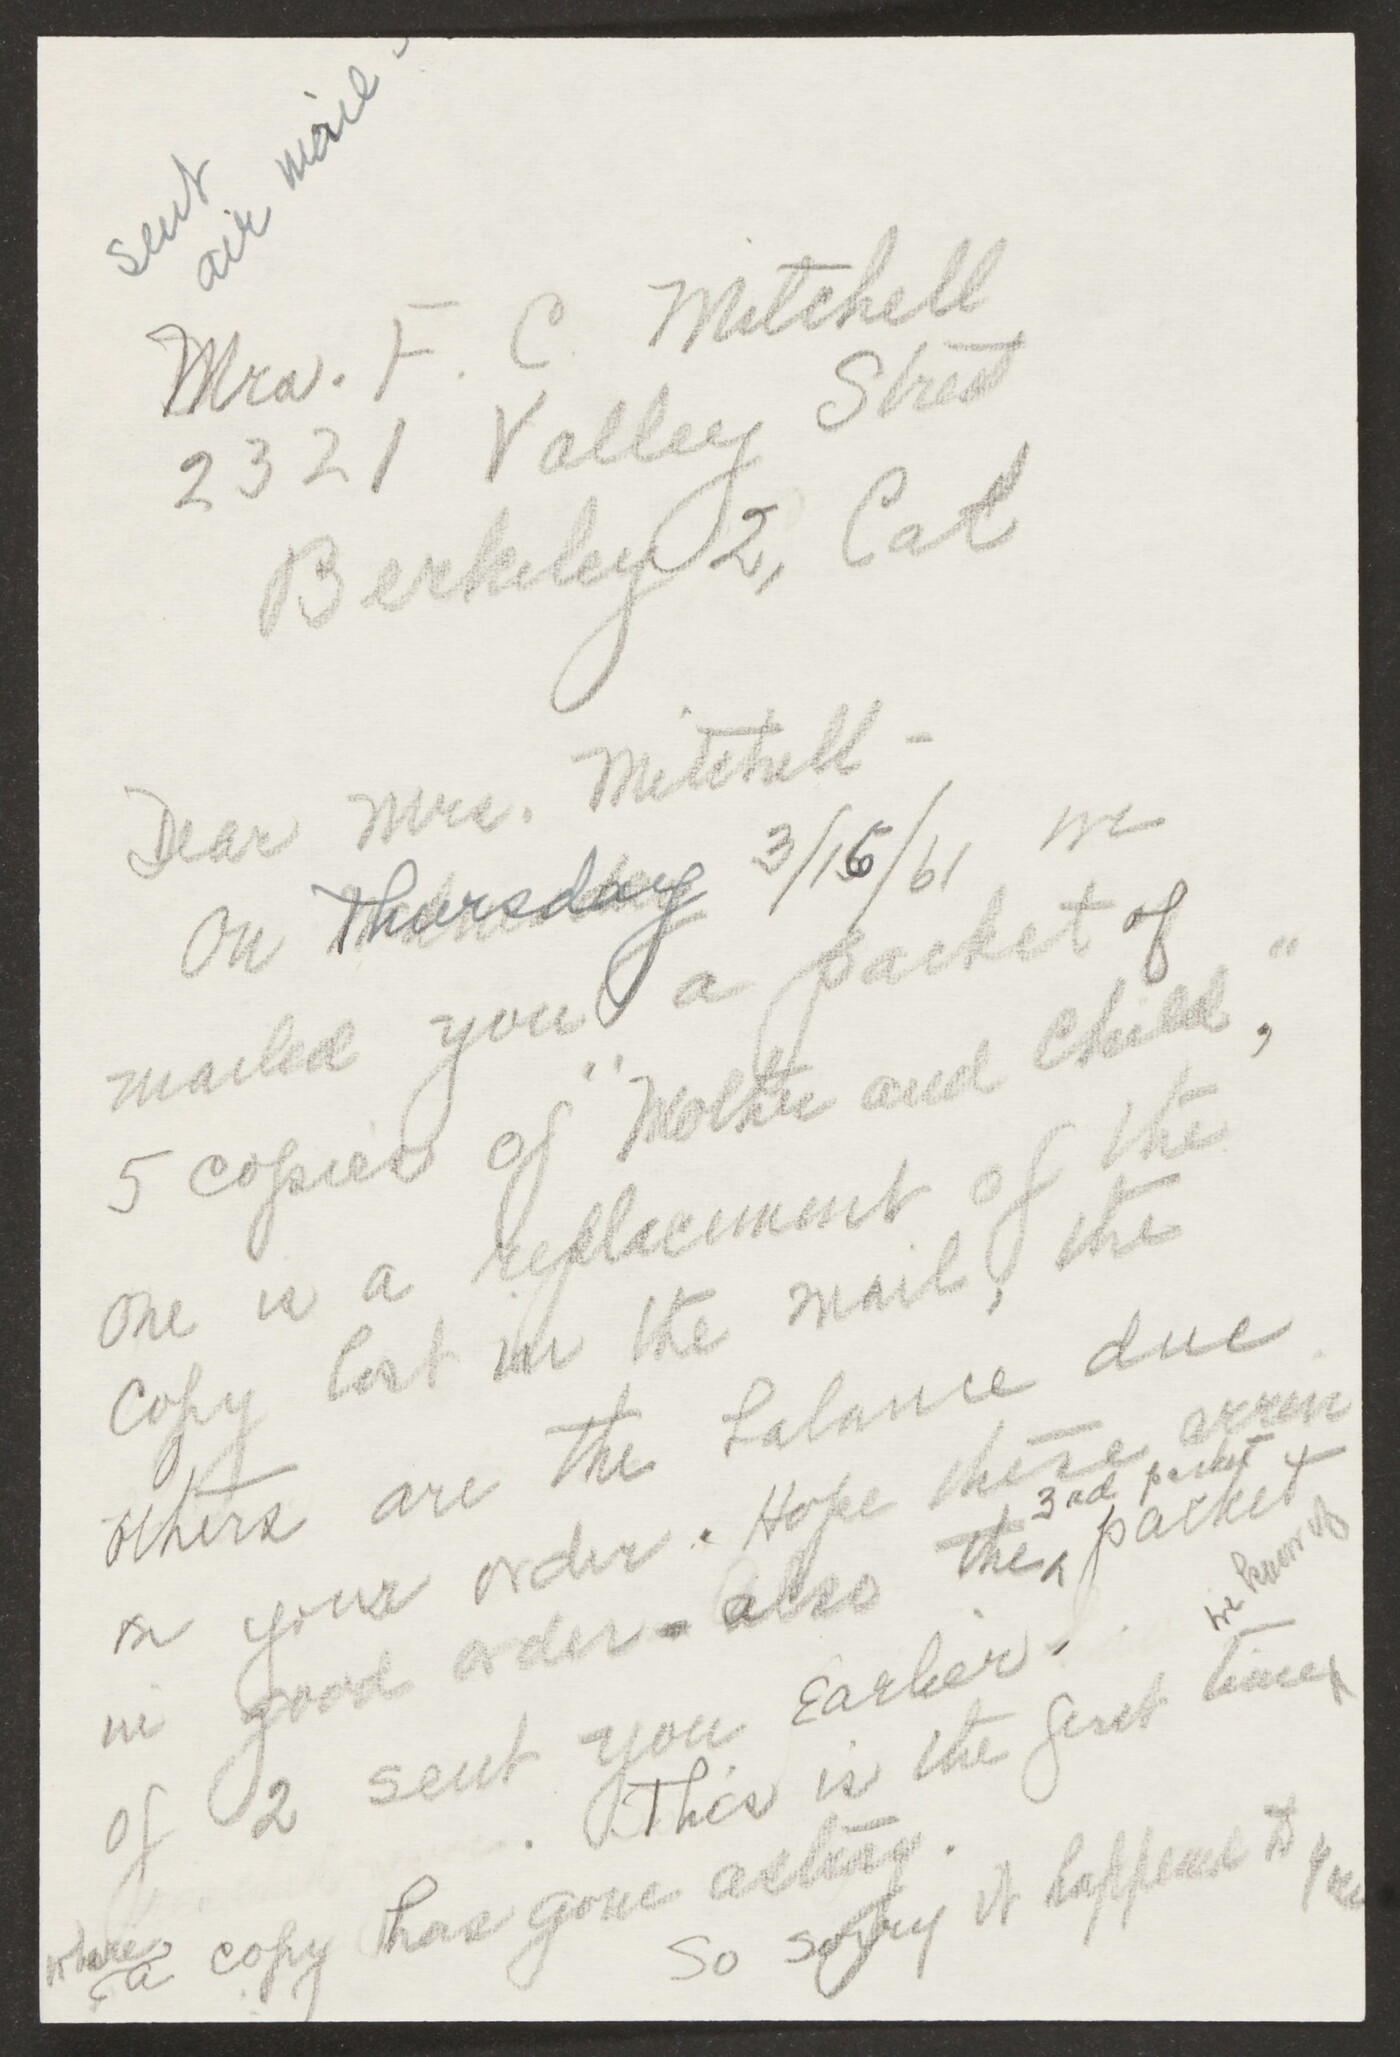 sent
air mail -
Mrs. F. C. Mitchell
2321 Valley Street
Berkeley 2, Cal
Dear Mrs. Mitchell -
On Thursday 3/16/61 we
mailed you a packet of
5 copies of "Mother and Child,"
one is a replacement of the
copy lost in the mail, the
others are the balance due
on your order. Hope these arrive
in good order - also the packet +
3rd packet
of 2 sent you Earlier.
we know of
This is the first time
where
a copy has gone astray.
So sorry it happened to you